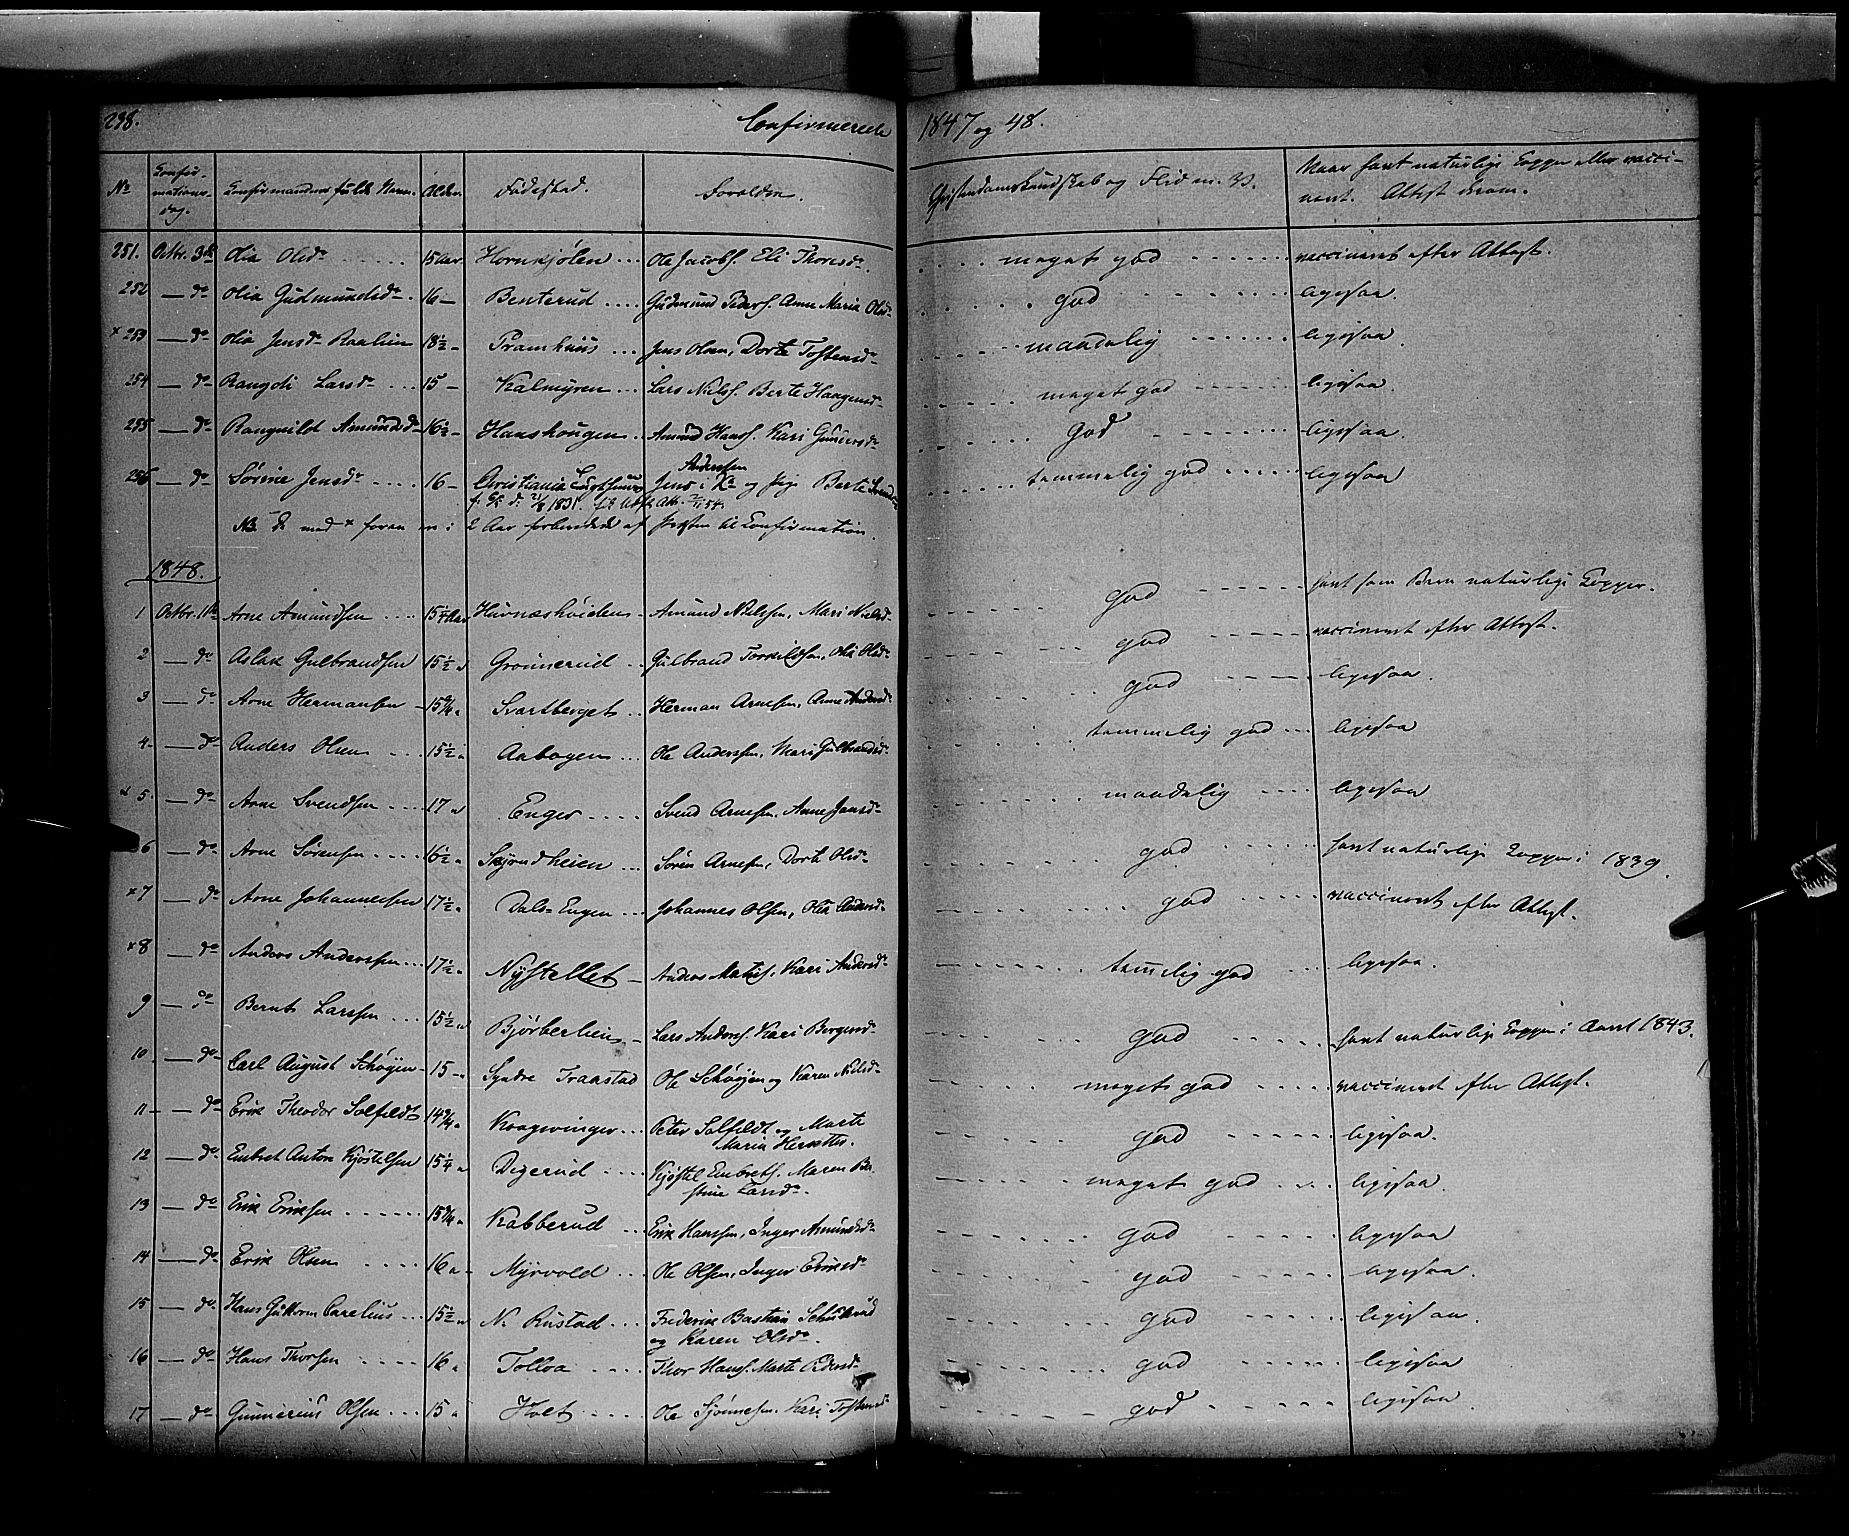 298. Confirmerede 1847 og 48.
No Confirmationsdag. Confirmandens fulde Navn. Alder. Fødested. Forældre. Christendomskundskab og Flid m. V. Naar havt naturlige Kopper eller vaccineret. Attest derom.
251. Octbr. 3die Olia Olsdr 15 Aar Hornkjølen Ole Jacobs. Eli Thoresdr. meget god vaccineret efter Attest.
252 — do Olia Gudmundsdr 16 — Benterud Gudmund Peders. Anne Maria Olsdr god ligesaa.
× 253 — do Olia Jensdr 18½ — Pramhuus Jens Olsen, Dorte Tostensdr maadelig ligesaa.
254 — do Rangdi Larsdr 15 — Kalmyren Lars Niels. Berte Haagensdr meget god ligesaa.
255 — do Rangnild Amundsdr 16½ — Hanshougen Amund Hans. Kari Gundersdr God ligesaa.
256 — do Sørine Jensdr 16 — Christiania Jens Anderssen i Xa og Pige Berte temmelig god ligesaa
f. 21/8 1831.
NB. De med × foran ere i 2 Aar forberedede af Præsten til Confirmation.
1848.
1 Octbr. 1ste Arne Amundsen 15¼ Aar Huvnæshøiden Amund Nielsen, Mari Nielsdr god havt som Barn naturlige Kopper.
2 — do Aslak Gulbrandsen 15½ " Grønnerud Gulbrand Torkildsen, Olia Olsdr god vaccineret efter Attest.
3 — do Arne Hermansen 15¾ " Svartberget Herman Arnesen, Anne Andersdr god ligesaa.
4 — do Anders Olsen 15½ " Aabogen Ole Anderssen, Mari Gulbrandsdr temmelig god ligesaa
× 5. — do Arne Svendsen 17 " Enger Svend Arnesen, Anne Jensdr maadelig ligesaa
6 — do Arne Sørensen 16½ " Skjøndheien Søren Arnesen, Dorte Olsdr god havt naturlige Kopper i 1839.
× 7 — do Arne Johannesen 17½ " Dals-Engen Johannes Olsen, Olia Andersdr god vaccineret efter Attest.
× 8 — do Anders Anderssen 17½ " Nystellet Anders Mathis. Kari Andersdr temelig god ligesaa.
9 — do Bernt Larssen 15½ " Bjørberheien Lars Anders. Kari Borgersdr god havt naturlige Kopper i Aaret 1843.
10 — do Carl August Schøyen 15 — " Syndre Traastad Ole Schøyen og Karen Nielsdr meget god vaccineret efter Attest.
11 — do Erik Theodor Solfeldt 14¾ " Kongsvinger Peter Solfeldt og Marte Maria god ligesaa.
12 — do Embret Anton Kjøstelsen 15¼ " Digerud Kjøstel Embrets. Maren Bastine Larsdr. meget god ligesaa
13 — do Erik Eriksen 15¾ " Kabberud Erik Hanssen, Inger Amundsdr god ligesaa
14 — do Erik Olsen 16 " Myrvold Ole Olsen, Inger Eriksdr god ligesaa.
15 — do Hans Guttorm Carelius 15½ " N. Rustad Frederik Bastian og Karen Olsdr. god ligesaa.
16 — do Hans Thorsen 16 " Tolloa Thor Hans. Marte Pedersdr god ligesaa
17 — do Gunnerius Olsen 15 " Holt Ole Kari Tostensdr god ligesaa.